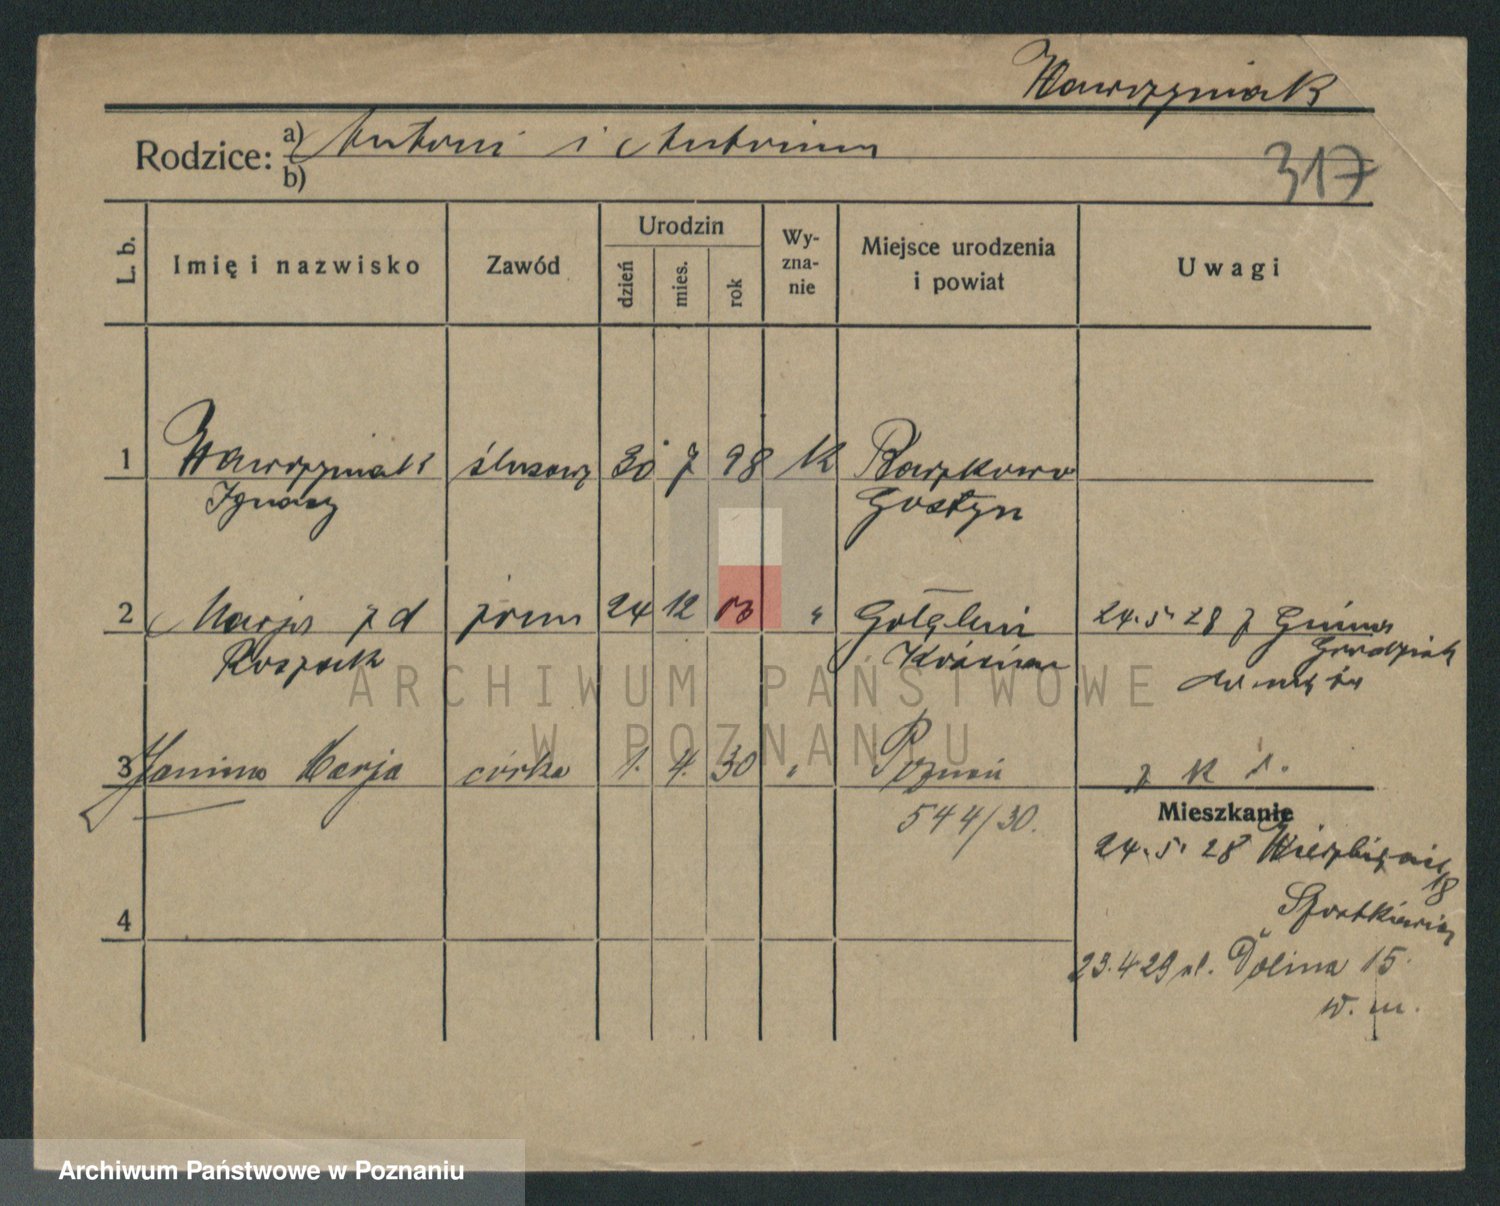 Wawrzyniak
Rodzice: a) Antoni i Antonina
b)
317
L. b.
Imię i nazwisko
Zawód
Urodzin
dzień
mies.
rok
Wy-
zna-
nie
Miejsce urodzenia
i powiat
Uwagi
1 Wawrzyniak ślusarz 30 7 98 K
Ignacy Gostyn
2 Marja z d żona 24 12 03 " Gołębin 24.5.28 z Gniewa
Kościan
3 Janina Marja córka 1. 4. 30 " Poznań
544/30.
Mieszkanie
24.5.28 Wierzbięcice
18
4
23.4.29 ul. Dolina 15.
w. m.
ARCHIWUM PAŃSTWOWE
W POZNANIU
Archiwum Państwowe w Poznaniu